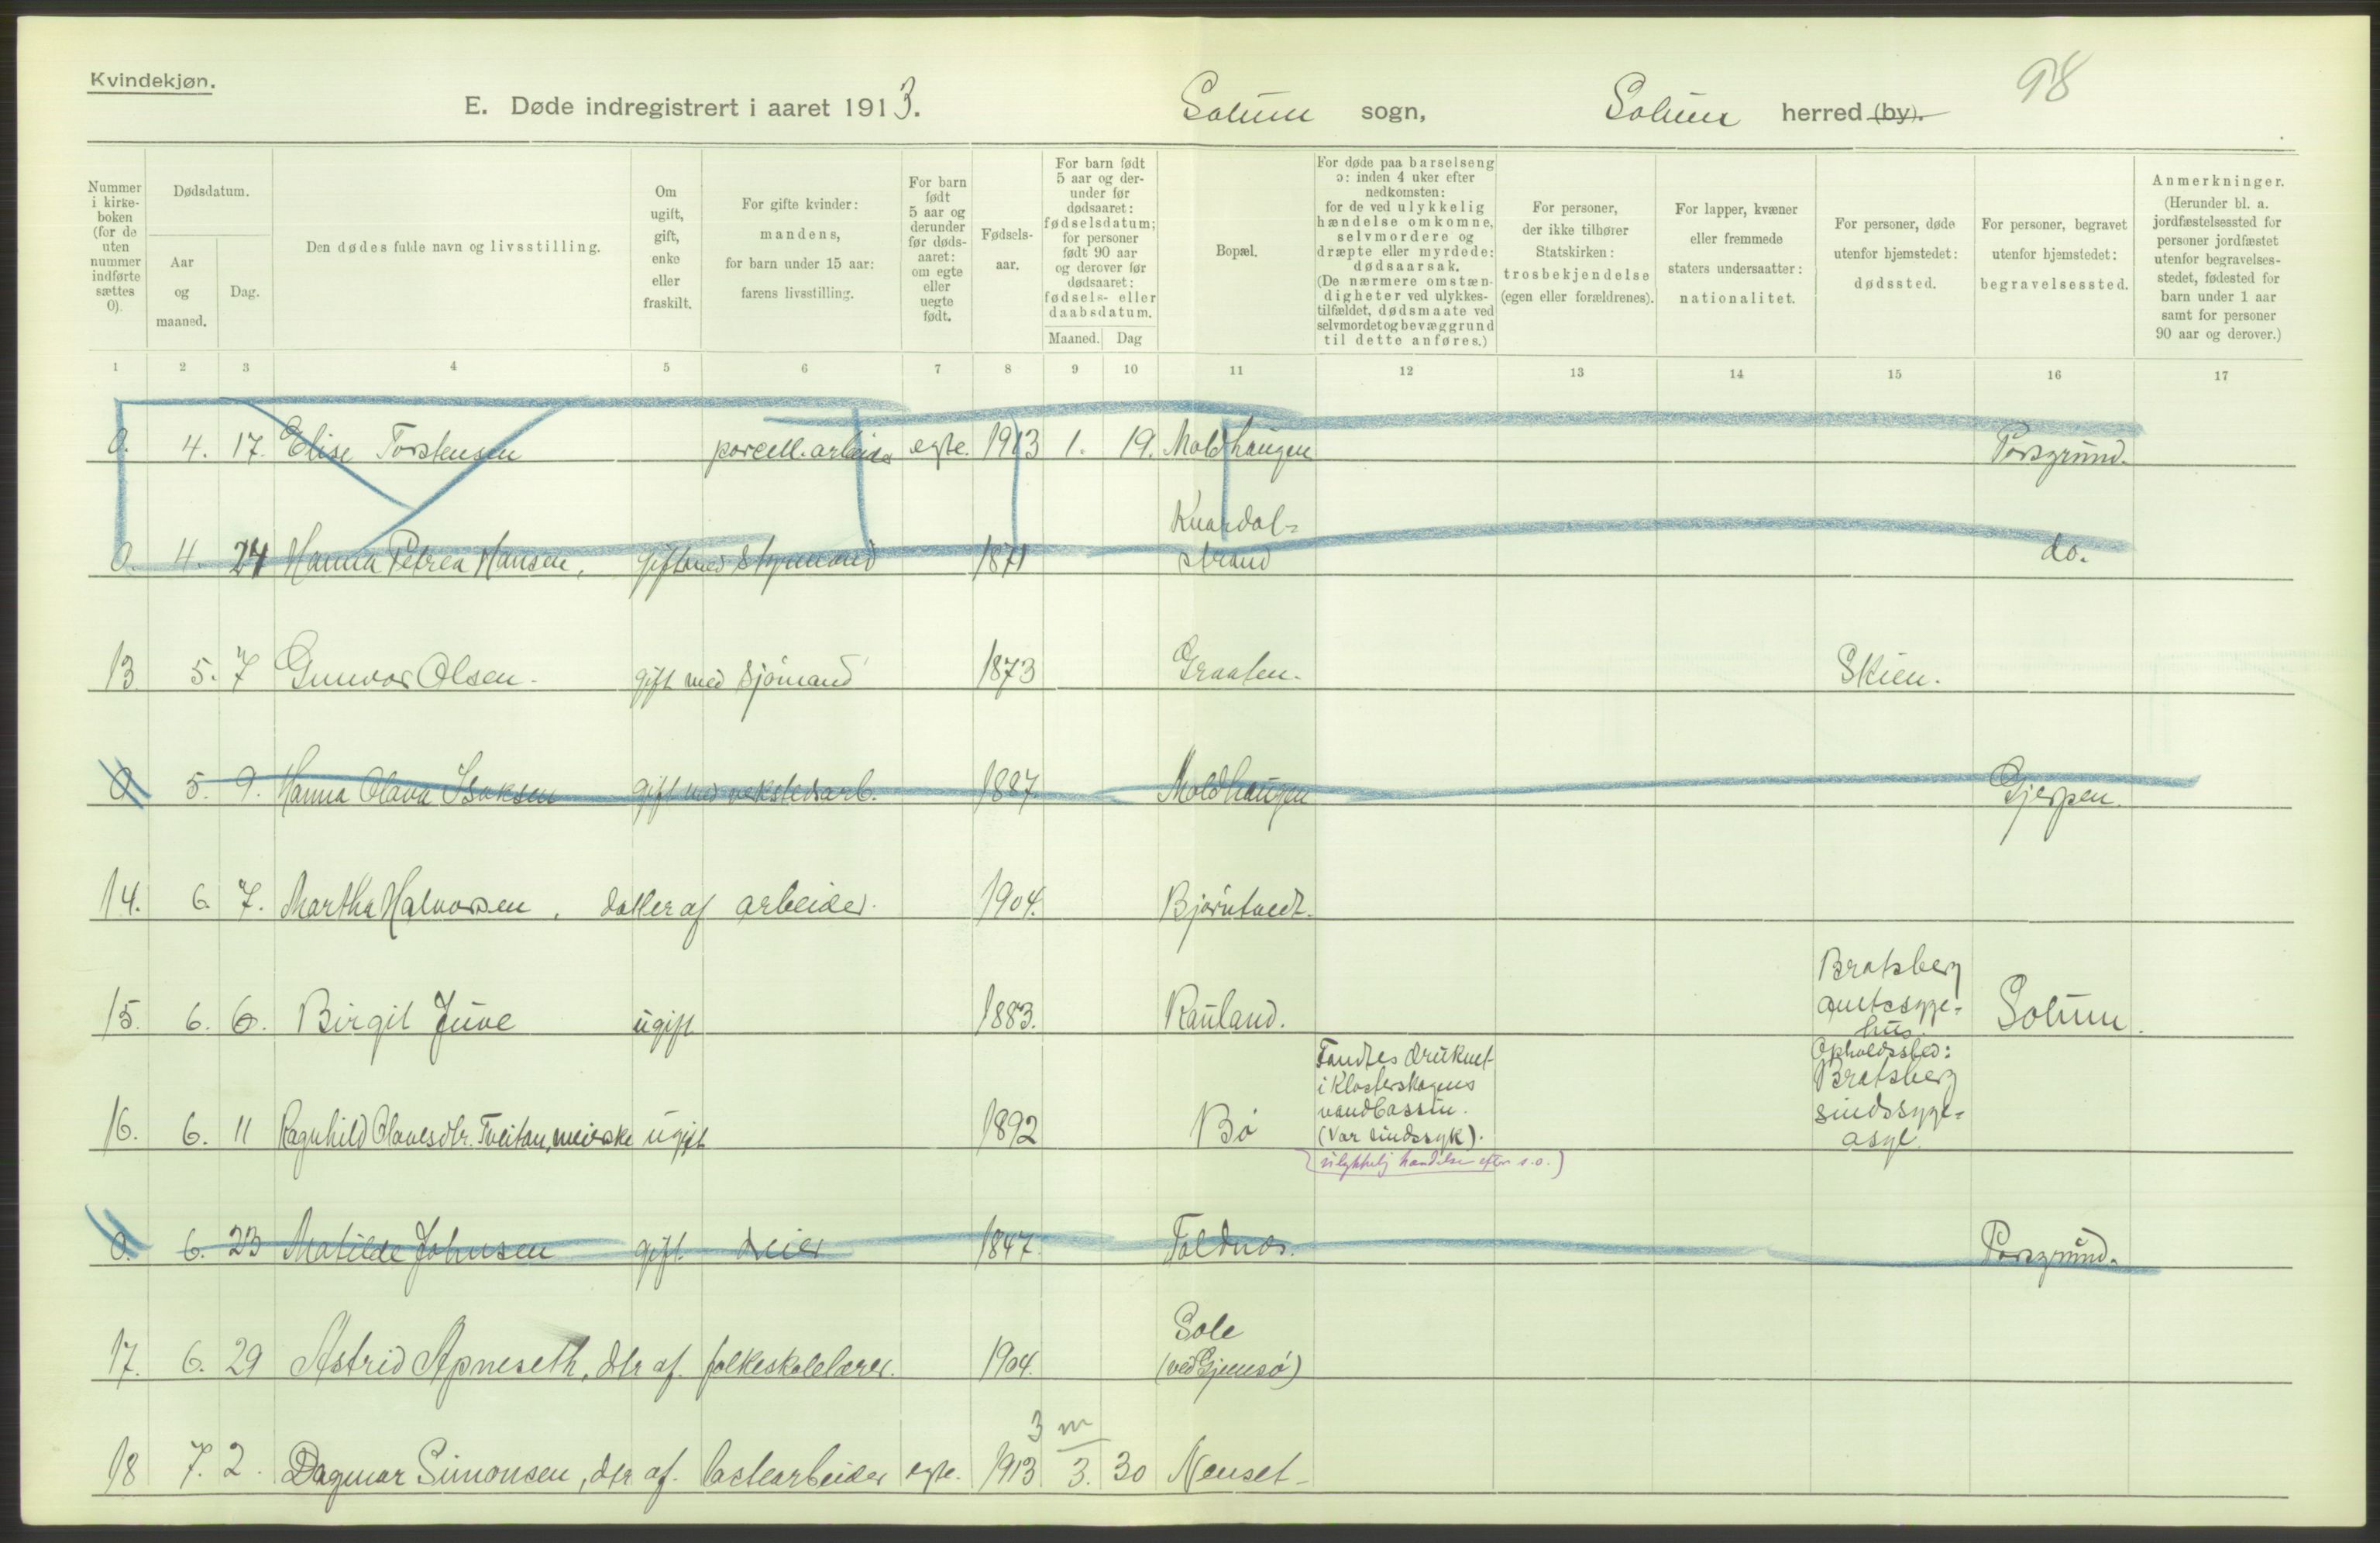 Kvindekjøn.
98
E. Døde indregistrert i aaret 1913. Solum sogn, Solum herred (by).
Nummer i kirkeboken (for de uten nummer indførte sættes 0).
Dødsdatum.
Aar og maaned.
Dag.
Den dødes fulde navn og livsstilling.
Om ugift, gift, enke eller fraskilt.
For gifte kvinder: mandens, for barn under 15 aar: farens livsstilling.
For barn født 5 aar og derunder før dødsaaret: om egte eller uegte født.
Fødselsaar.
For barn født 5 aar og derunder før dødsaaret: fødselsdatum; for personer født 90 aar og derover før dødsaaret: fødsels- eller daabsdatum.
Maaned. Dag
Bopæl.
For døde paa barselseng ɔ: inden 4 uker efter nedkomsten: for de ved ulykkelig hændelse omkomne, selvmordere og dræpte eller myrdede: dødsaarsak. (De nærmere omstændigheter ved ulykkestilfældet, dødsmaate ved selvmordet og bevæggrund til dette anføres.)
For personer, der ikke tilhører Statskirken: trosbekjendelse (egen eller forældrenes).
For lapper, kvæner eller fremmede staters undersaatter: nationalitet.
For personer, døde utenfor hjemstedet: dødssted.
For personer, begravet utenfor hjemstedet: begravelsessted.
Anmerkninger. (Herunder bl. a. jordfæstelsessted for personer jordfæstet utenfor begravelsesstedet, fødested for barn under 1 aar samt for personer 90 aar og derover.)
1 2 3 4 5 6 7 8 9 10 11 12 13 14 15 16 17
0. 4. 17. Elise Torstensen porcell. arbeider egte. 1913 1. 19. Moldhaugen Porsgrund.
0. 4. 24 Hanna Petrea Hansen, gift med styrmand 1871 Knardalstrand do.
13 5. 7 Gunvor Olsen. gift med sjømand 1873 Graaten. Skien.
0 5. 9. Hanna Olava Isaksen gift med verkstedsarb. 1887. Moldhaugen Gjerpen.
14. 6 7. Martha Halvorsen, datter af arbeider. 1904. Bjørntvedt.
15. 6. 6. Birgit Juve ugift 1883. Rauland. Bratsberg amtssygehus. Solum.
16. 6. 11 Ragnhild Olavesdtr. Tveitan, meierske ugift 1892 Bø Fandtes druknet i Klosterskogens vandbassin. (Var sindssyk). Opholdssted: Bratsberg sindssygeasyl.
(ulykkelig hændelse efter s.o.)
0. 6. 23 Matilde Johnsen gift eier 1847. Foldnes. Porsgrund.
17. 6. 29 Astrid Apneseth, dtr af. folkeskolelærer. 1904. Sole (ved Gjemsø)
3 m
18 7. 2. Dagmar Simonsen, dtr af. lastearbeider egte. 1913 3. 30 Nenset